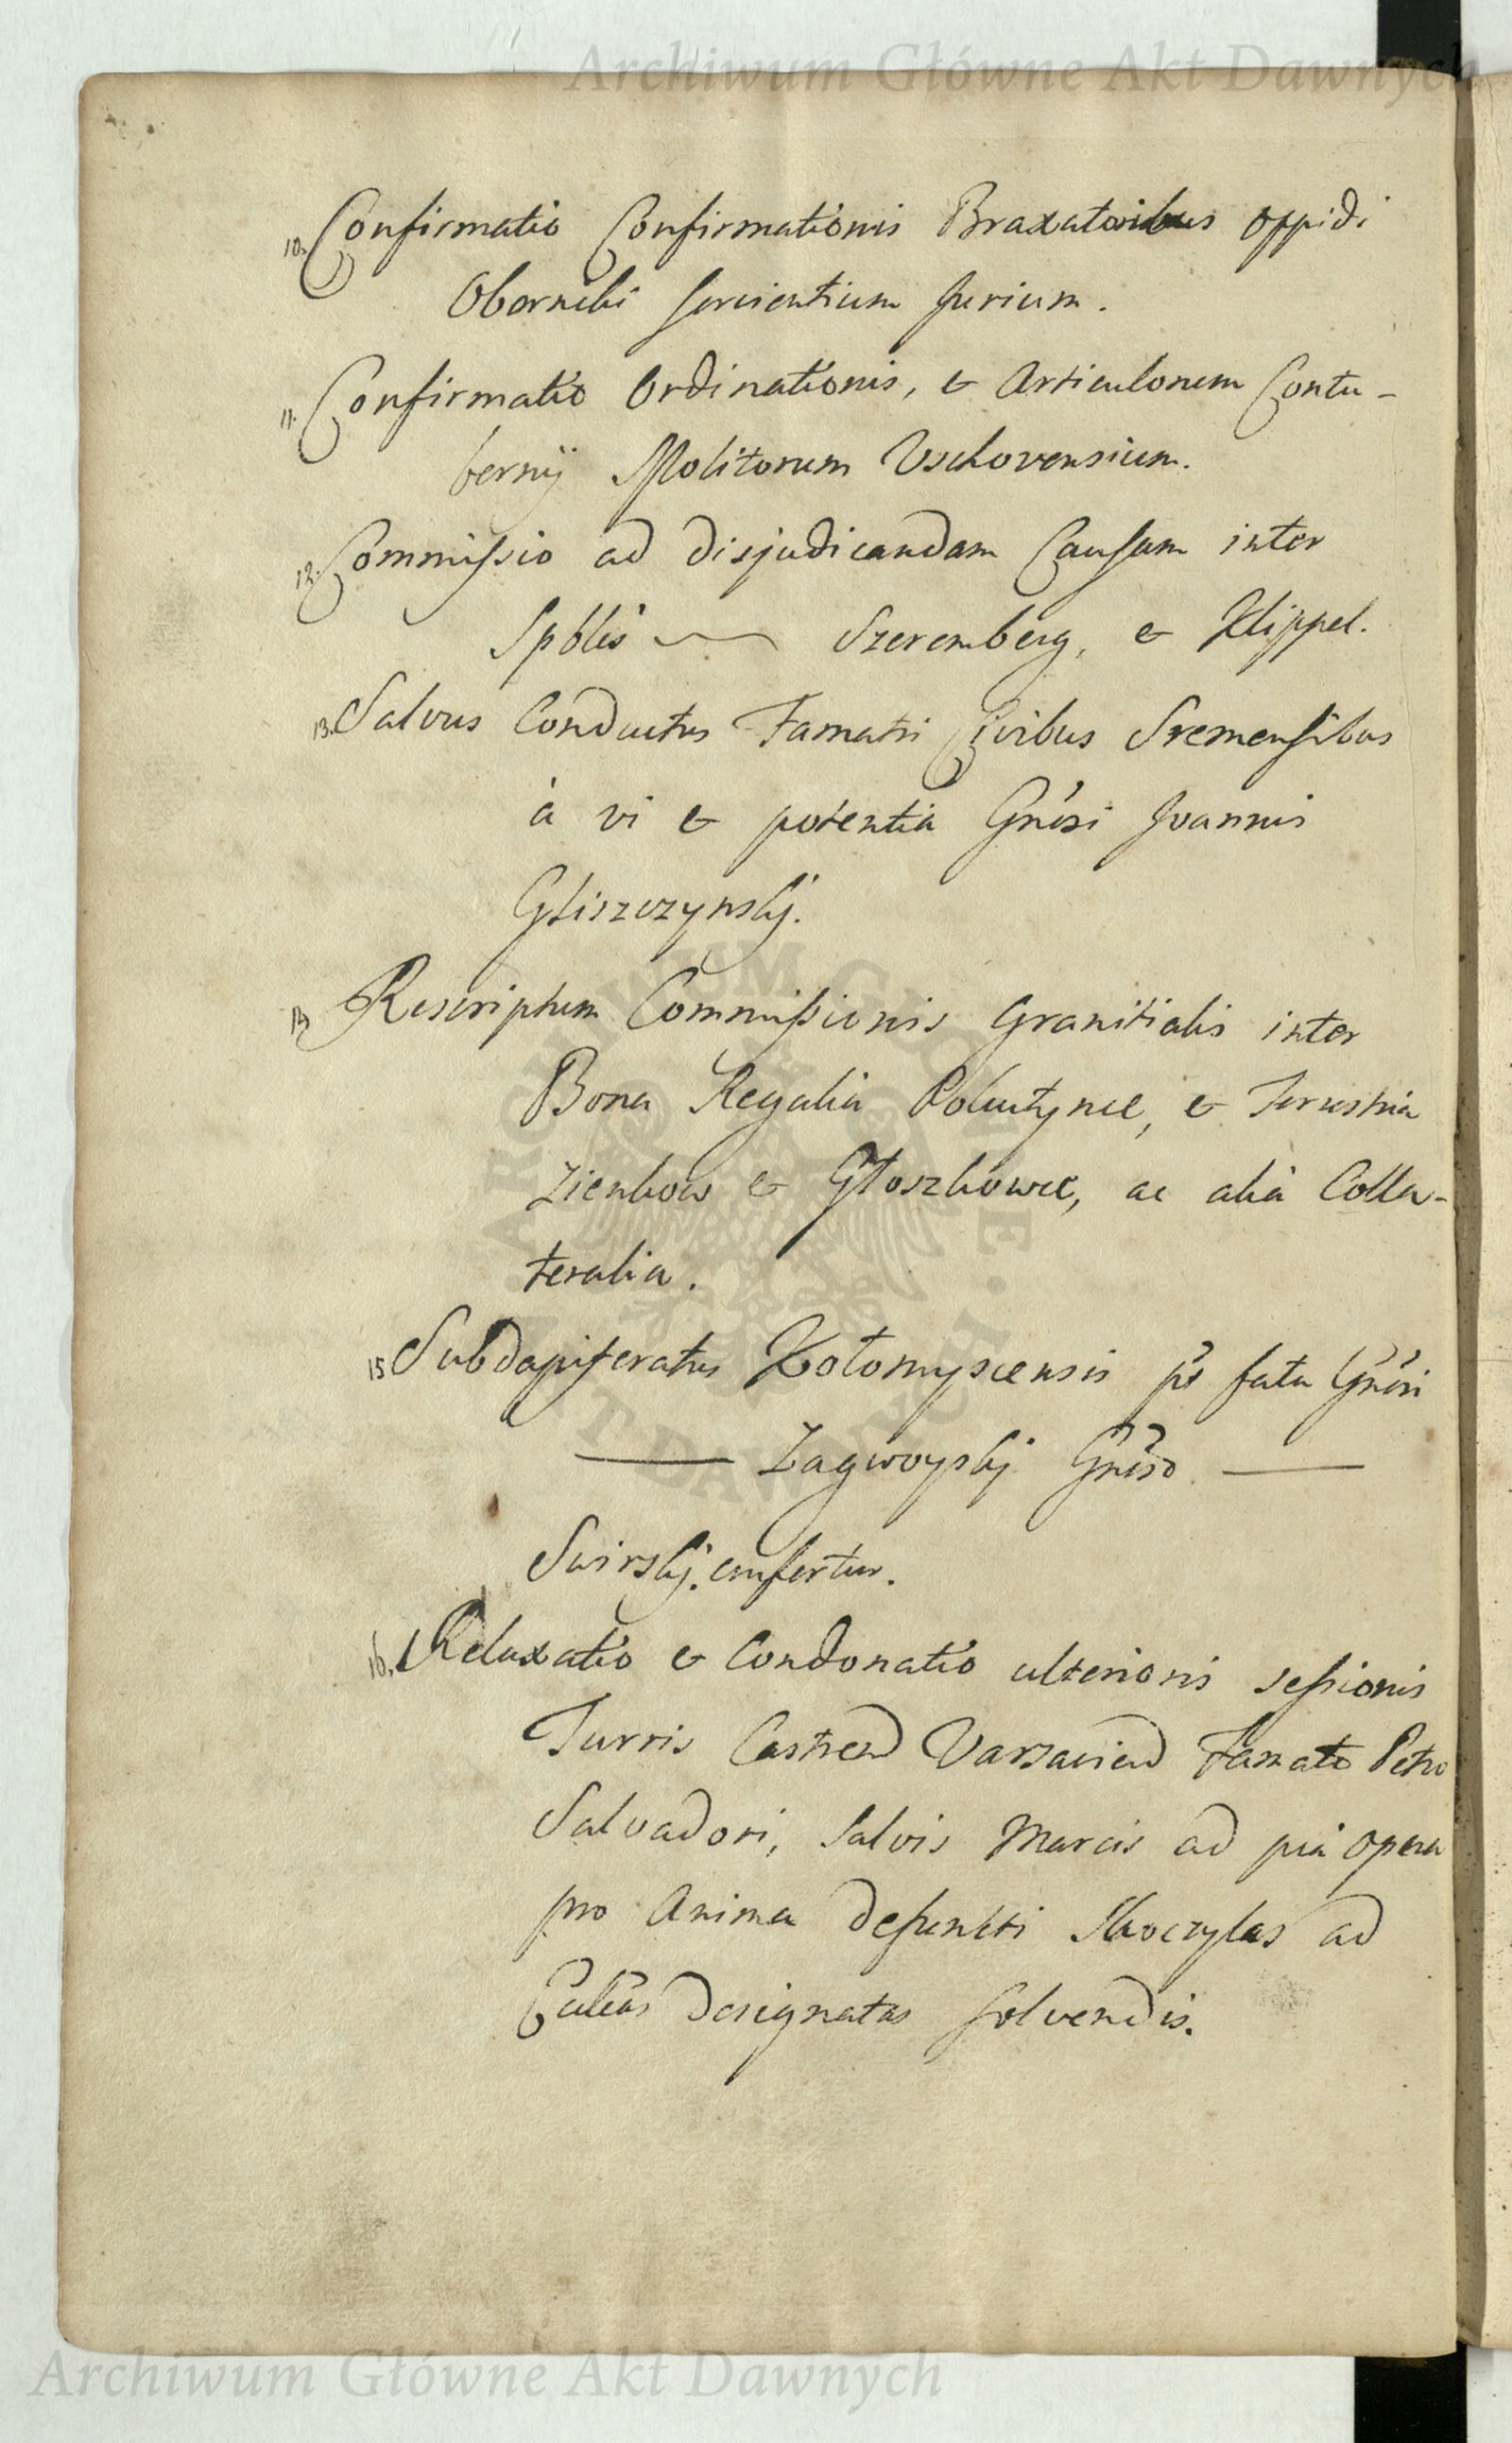 Archiwum Główne Akt Dawnych
10. Confirmatio Confirmationis Braxatoribus oppidi
Obornicki servientium Jurium.
11. Confirmatio Ordinationis, & Articulorum Contu-
bernij Molitorum Vschovensium.
12. Commissio ad disjudicandam Causam inter
Spbles Szeremberg, & Klippel.
13. Salvus Conductus Famatis Civibus Sremensibus
à vi & potentia Gnosi Joannis
Gliszczynskj.
14 Rescriptum Commissionis Granitialis inter
Bona Regalia &
Zienkow & Głoszkowce, ac alia Colla-
teralia.
15 Subdapiferatus Kołomyscensis pt fata Gnosi
Zagwoyskj Gnoso
Swirskj. confertur.
16. Relaxatio & Condonatio ulterioris sessionis
Turris Castren Varsavien Famato Petro
Salvadori, salvis Marcis ad pia opera
pro Anima defuncti ad
Ecclias designatas solvendis.
Archiwum Główne Akt Dawnych